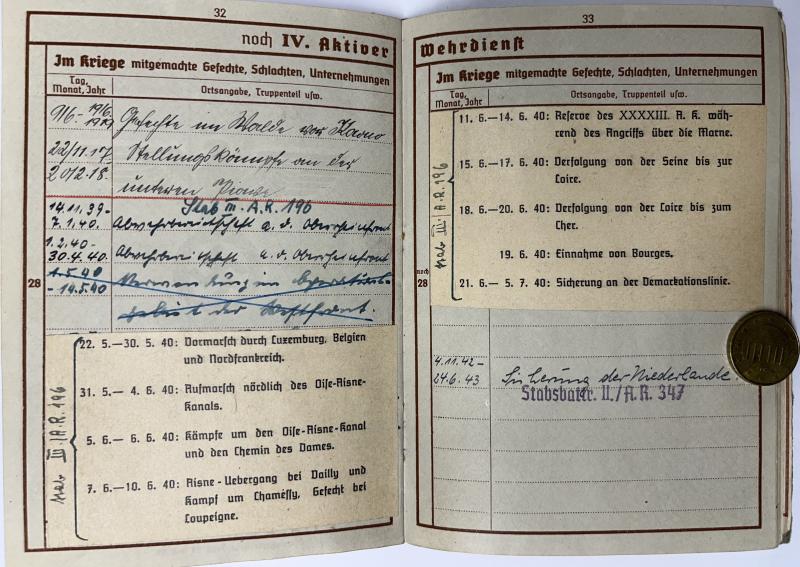 32
noch IV. Aktiver
Im Kriege mitgemachte Gefechte, Schlachten, Unternehmungen
Tag, Monat, Jahr
Ortsangabe, Truppenteil usw.
Gefechte im Walde von
22/11.17 Stellungskämpfe an der
20/12.18. unteren Piave
Stab III. A.R. 196
14.11.39- 7.1.40. Abwehrbereitschaft a. d. Oberrheinfront
1.2.40- 30.4.40. Abwehrbereitschaft a. d. Oberrheinfront
1.5.40 - 14.5.40 Verwendung im Operations-
gebiet der Westfront.
28
Stab III./A.R. 196
22. 5.—30. 5. 40: Vormarsch durch Luxemburg, Belgien
und Nordfrankreich.
31. 5.— 4. 6. 40: Aufmarsch nördlich des Oise-Aisne-
Kanals.
5. 6.— 6. 6. 40: Kämpfe um den Oise-Aisne-Kanal
und den Chemin des Dames.
7. 6.—10. 6. 40: Aisne-Uebergang bei Vailly und
Kampf um Chaméssy, Gefecht bei
Loupeigne.
33
Wehrdienst
Im Kriege mitgemachte Gefechte, Schlachten, Unternehmungen
Tag, Monat, Jahr
Ortsangabe, Truppenteil usw.
Stab III./A.R. 196
11. 6.—14. 6. 40: Reserve des XXXXIII. A. K. wäh-
rend des Angriffs über die Marne.
15. 6.—17. 6. 40: Verfolgung von der Seine bis zur
Loire.
18. 6.—20. 6. 40: Verfolgung von der Loire bis zum
Cher.
19. 6. 40: Einnahme von Bourges.
noch 28
21. 6.— 5. 7. 40: Sicherung an der Demarkationslinie.
4.11.42-
24.6.43 Sicherung der Niederlande.
Stabsbattr. II./A.R. 347